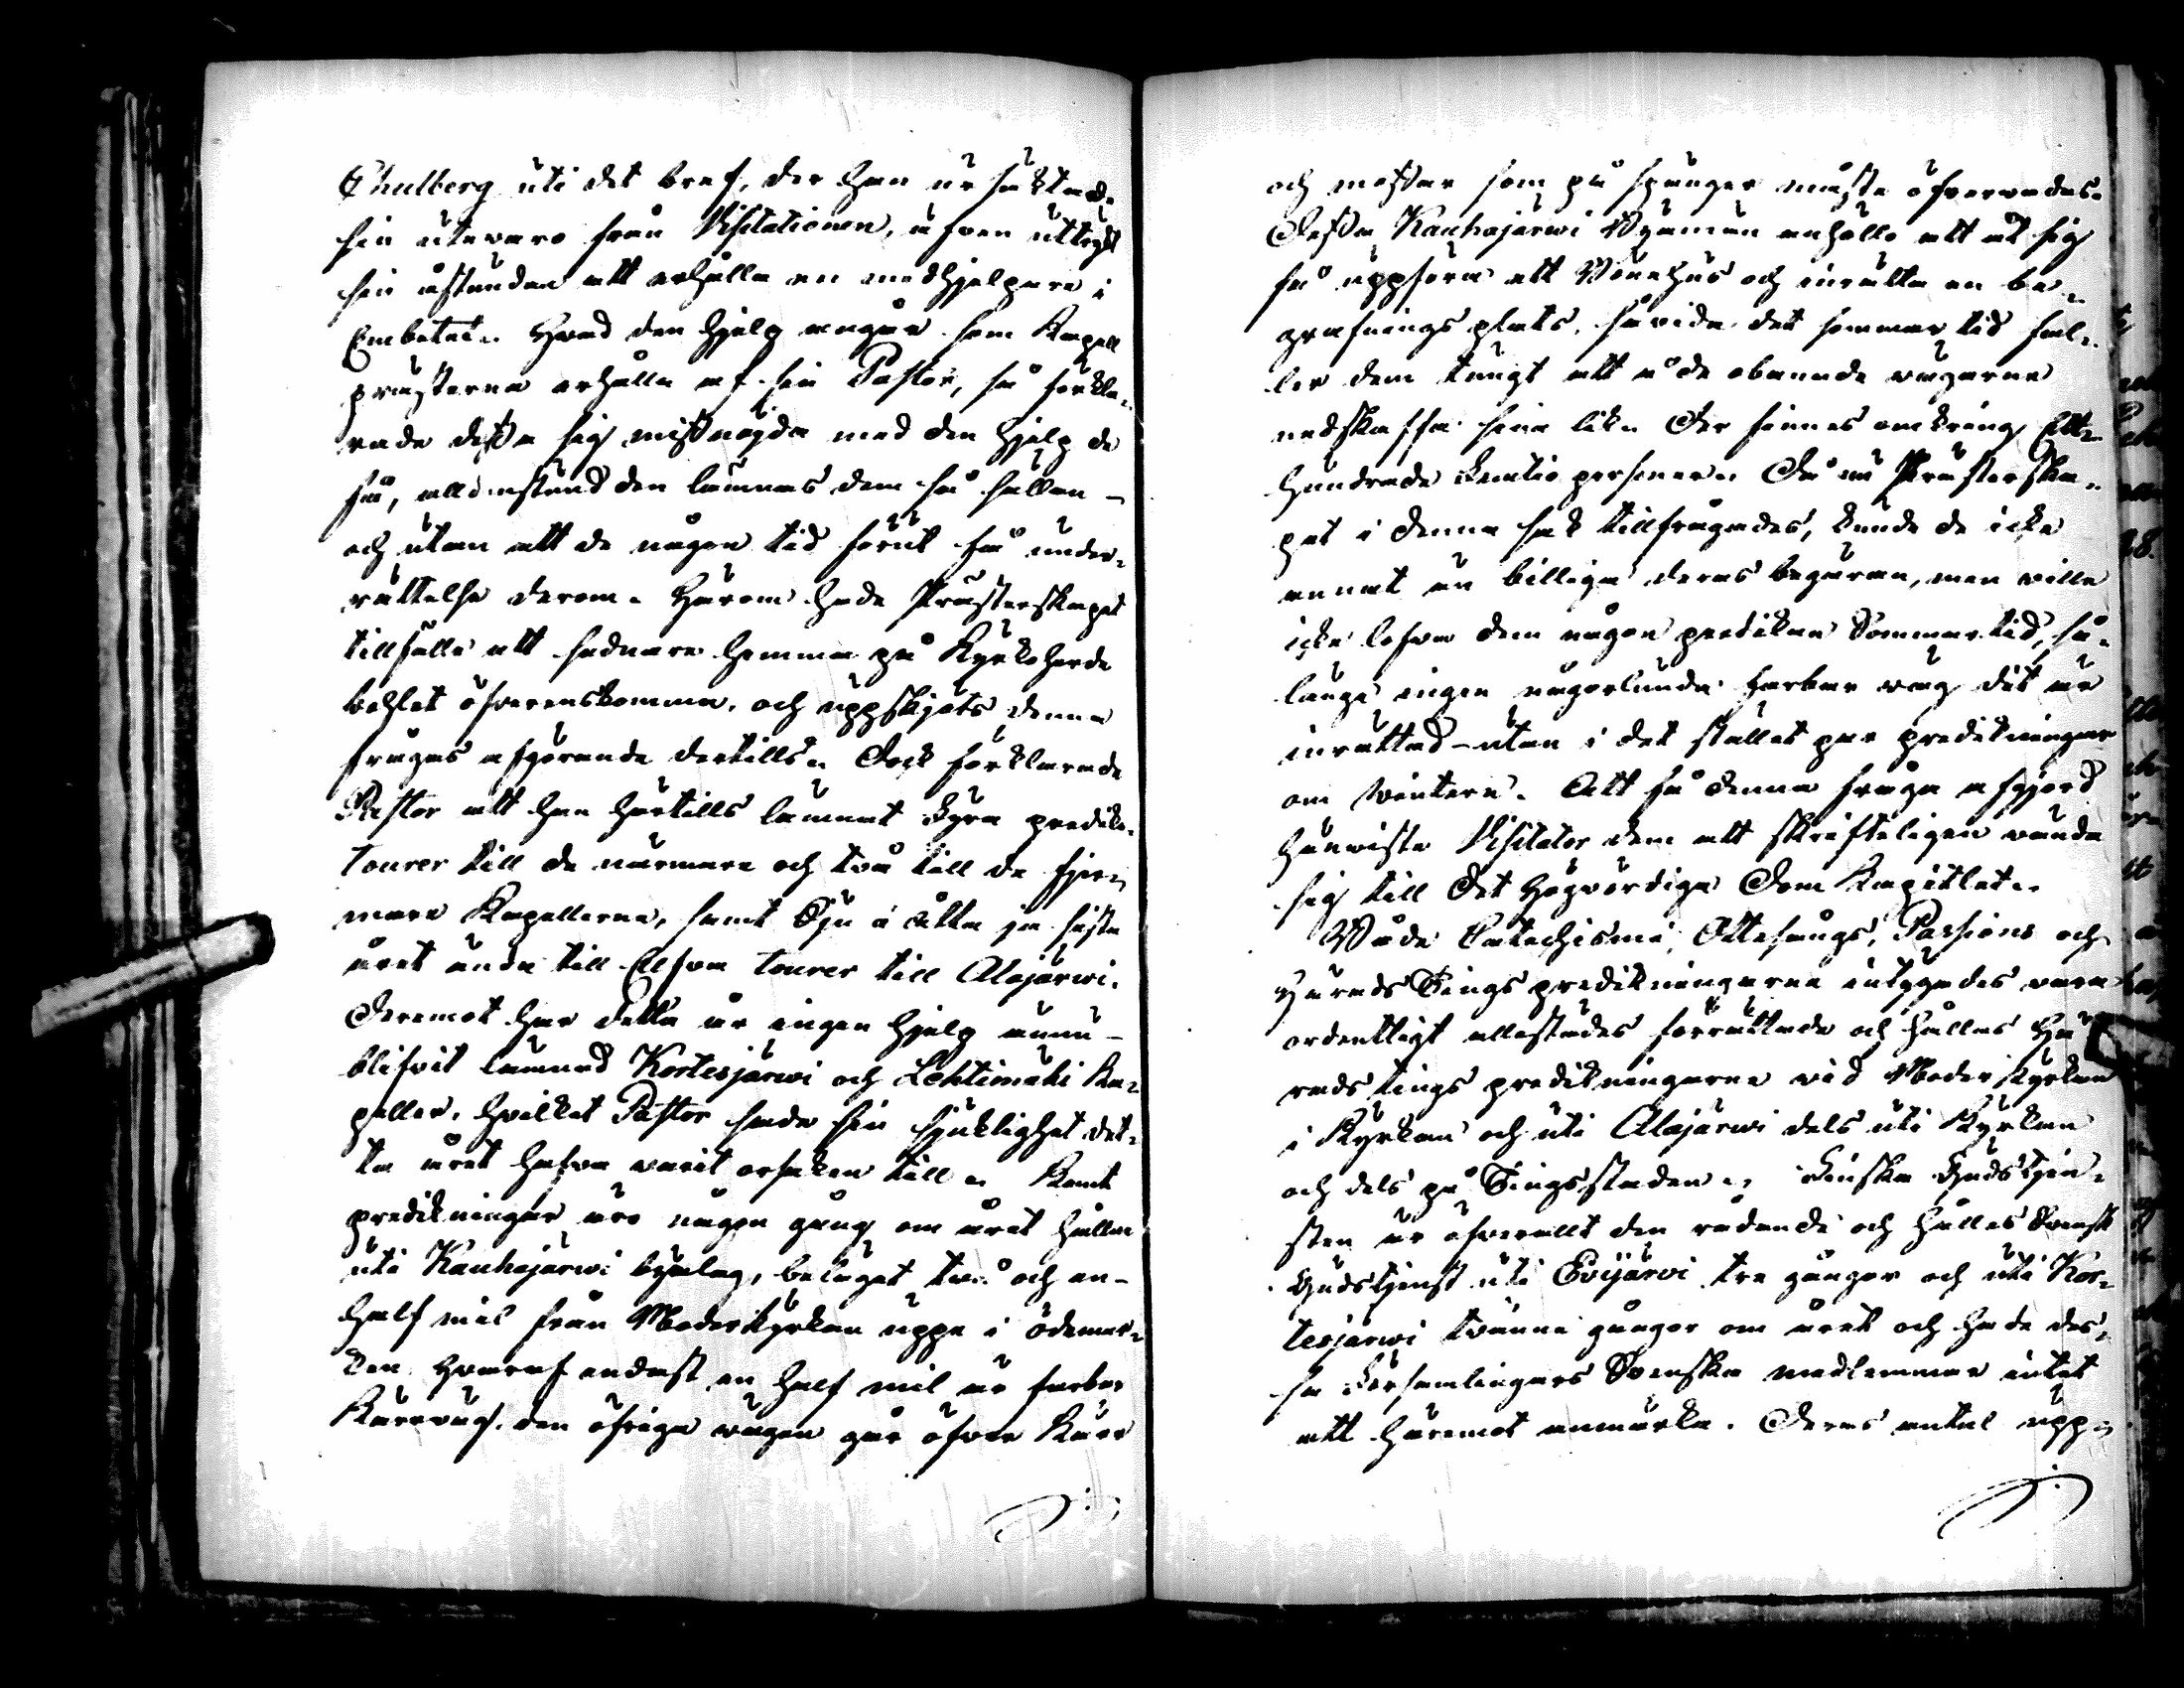 Thulberg uti det bref, der han ursäktade
sin utevaro från Visitationen, äfven uttryckt
sin åstundan att erhålla en medhjelpare i
Embetet. Hvad den hjelp angår som Kapell
presterna erhålla af sin Pastor, så förkla-
rade dessa sig missnöjda med den hjelp de
få, alldenstund den lämnas dem så sällan -
och utan att de någon tid förut få under-
rättelse derom. Härom hade Presterskapet
tillfälle att sednare hemma på Kyrkoherde
bohlet öfverenskomma, och uppskjöts denna
frågas afgörande dertills. Dock förklarade
Pastor att han härtills lämnat fyra prediko-
tourer till de närmare och två till de fjer-
mare Kapellerne, samt sju à åtta ja sista
året ända till Elfva tourer till Alajärwi.
Deremot har detta år ingen hjelp ännu -
blifvit lämnad Kortesjärwi och Lehtimäki Ka-
peller, hvilket Pastor sade sin sjuklighet det-
ta året hafva varit orsaken till. Samt
predikningar äro någon gång om året hållne
uti Kauhajärwi byalag, beläget två och en-
half mil från Moderkyrkan uppe i ödemar-
ken hvaraf endast en half mil är farbar
Kärrväg, den öfriga vägen går öfver Kärr
och mossar som på spänger måste öfvervadas.
Dessa Kauhajärwi Byamän anhöllo att åt sig
få uppföra ett Bönehus och inrätta en be-
grafnings plats, såvida det sommartid fal-
ler dem tungt att å de obanade vägarne
nedskaffa sina lik. Der finnes omkring Ett-
hundrade femtio personer. Då nu Presterska-
pet i denna sak tillfrågades, kunde de icke
annat än billiga deras begäran, men ville
icke lofva dem någon predikan Sommartid, så-
länge ingen någorlunda farbar väg dit är
inrättad - utan i det stället par predikningar
om Wintern. Att få denna fråga afgjord
hänviste Visitator dem att skrifteligen vända
sig till Det Högvördiga Dom Kapitlet.
Både Catechismi, Ottesångs, Passions och
Härads Tings predikningarna intygades vara
ordentligt allestädes förrättade och hållas Hä-
rads tings predikningarne vid Moder Kyrkan
i Kyrkan och uti Alajärwi dels uti Kyrkan
och dels på Tingsstaden. Finska Gudstjen-
sten är öfverallt den rådande och hålles Svensk
Gudstjenst uti Evijärvi tre gånger och uti Kor-
tesjärwi tvänne gånger om året och hade des-
sa församlingars Svenska medlemmar intet
att häremot anmärka. Deras antal upp-